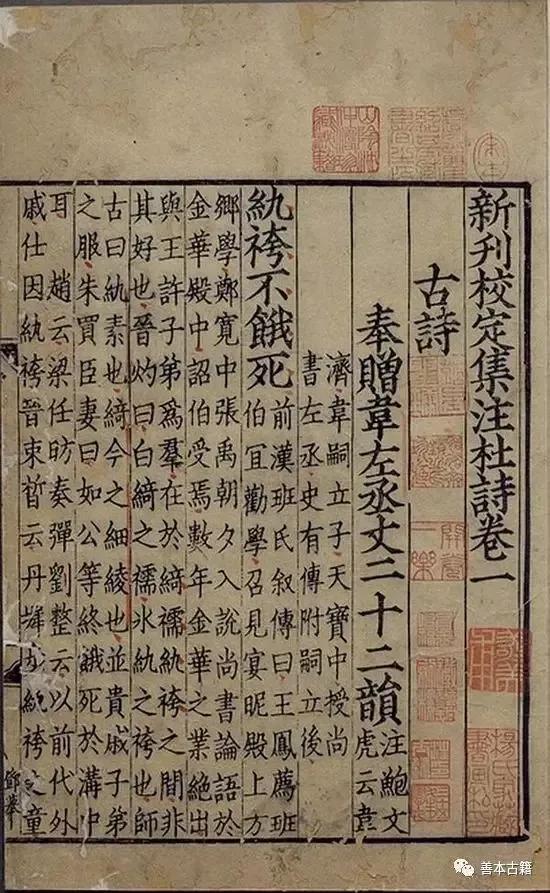 新刊校定集注杜詩卷一
古詩
奉贈韋左丞丈二十二韻
注鮑文
虎云韋
濟韋嗣立子天寶中授尚
書左丞史有傳附嗣立後
紈袴不餓死
前漢班氏叙傳曰王鳳薦班
伯宜勸學召見宴昵殿上方
鄉學鄭寬中張禹朝夕入說尚書論語於
金華殿中詔伯受焉數年金華之業絕出
與王許子弟爲羣在於綺襦紈袴之間非
其好也晉灼曰白綺之襦冰紈之袴也師
古曰紈素也綺今之細綾也並貴戚子弟
之服朱買臣妻曰如公等終餓死於溝中
耳 趙云梁任昉奏彈劉整云以前代外
戚仕因紈袴晉束晳云丹墀步紈袴之童
鄧舉
善本古籍